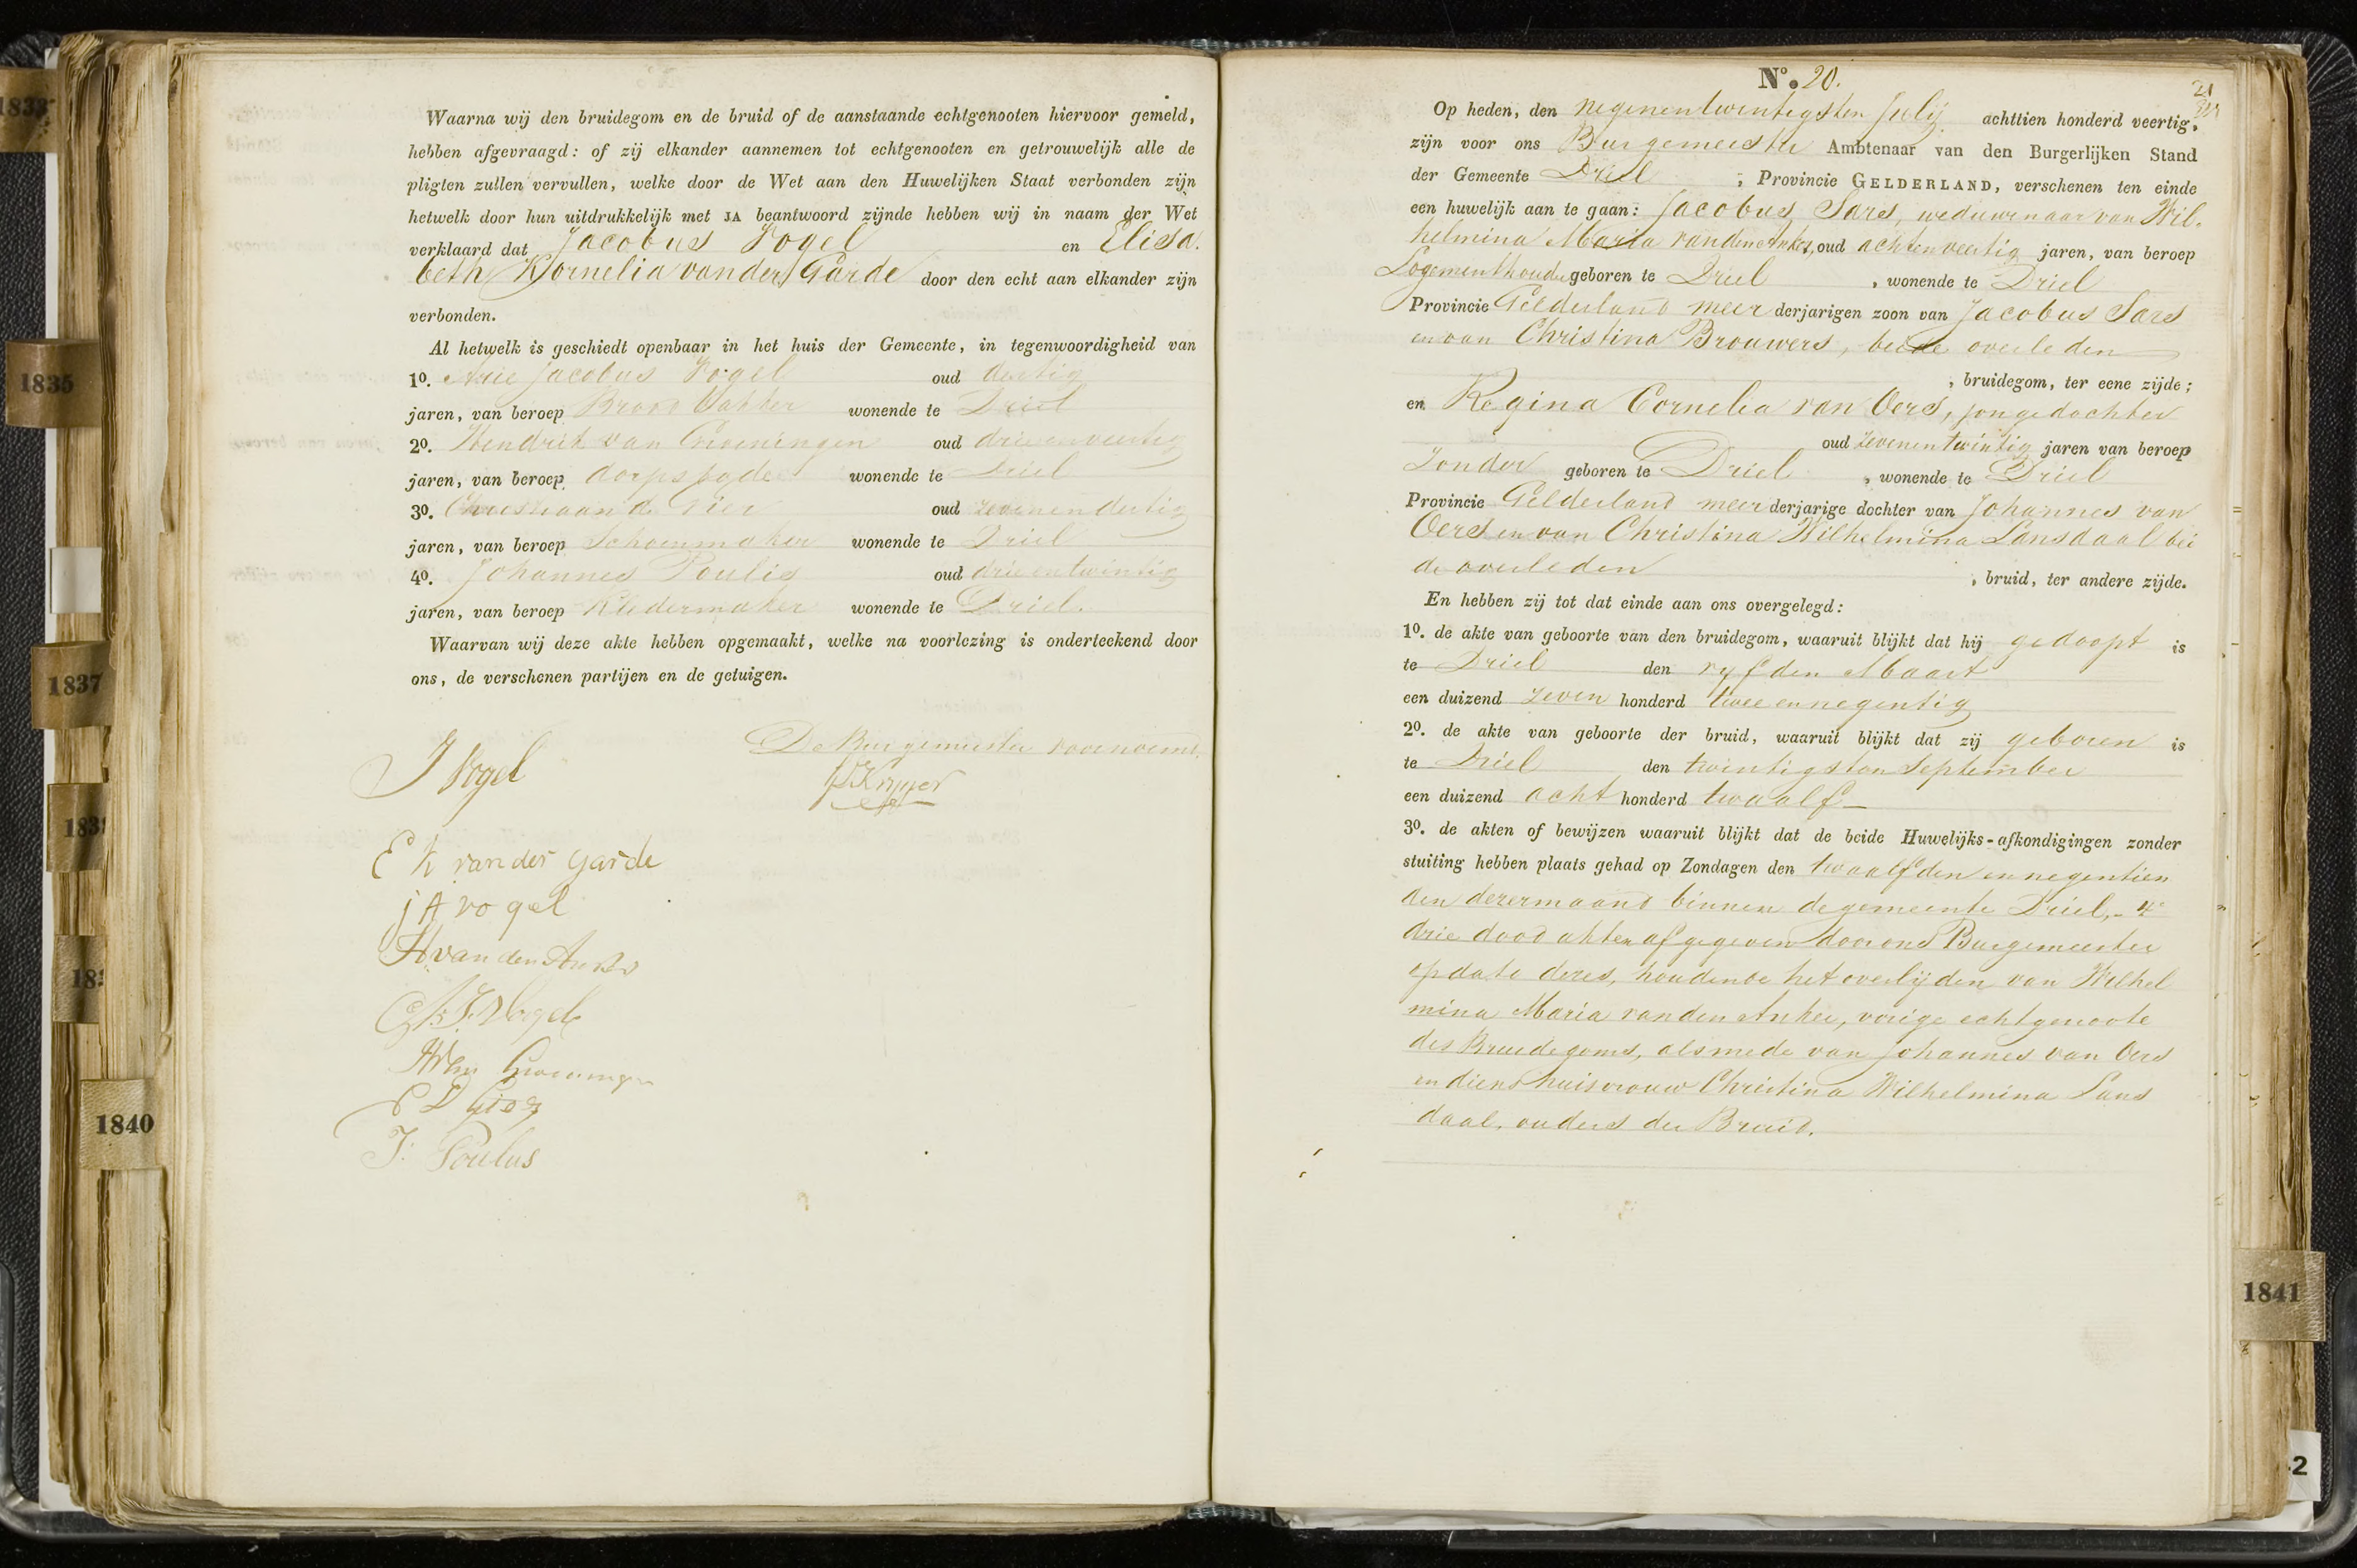 Waarna wij den bruidegom en de bruid of de aanstaande echtgenooten hiervoor gemeld,
hebben afgevraagd: of zij elkander aannemen tot echtgenooten en getrouwelijk alle de
pligten zullen vervullen, welke door de Wet aan den Huwelijken Staat verbonden zijn
hetwelk door hun uitdrukkelijk met JA beantwoord zijnde hebben wij in naam der Wet
verklaard dat Jacobus Vogel en Elisa.
beth Kornelia van der Garde door den echt aan elkander zijn
verbonden.
Al hetwelk is geschiedt openbaar in het huis der Gemeente, in tegenwoordigheid van
1º. Arie Jacobus Vogel oud dertig
jaren, van beroep Brood Bakker wonende te Driel
2º. Hendrik van Groeningen oud drie en veertig
jaren, van beroep dorpsbode wonende te Driel
3º. Christiaan de Gier oud zeven en dertig
jaren, van beroep Schoenmaker wonende te Driel
4º. Johannes Poulis oud drie en twintig
jaren, van beroep Kledermaker wonende te Driel.
Waarvan wij deze akte hebben opgemaakt, welke na voorlezing is onderteekend door
ons, de verschenen partijen en de getuigen.
De Burgemeester voornoemd.
J Vogel
E K van der Garde
j A vogel
H van den Anker
Vogel
Groeningen
C D Gier
J: Poulus
1835
1837
1840
Nº. 20.
21
Op heden, den negenentwintigsten Julij achttien honderd veertig,
zijn voor ons Burgemeester Ambtenaar van den Burgerlijken Stand
der Gemeente Driel, Provincie GELDERLAND, verschenen ten einde
een huwelijk aan te gaan: Jacobus Sars, weduwenaar van Wil-
helmina Maria van den Anker, oud achtenveertig jaren, van beroep
Logementhouder geboren te Driel, wonende te Driel
Provincie Gelderland meerderjarigen zoon van Jacobus Sars
en van Christina Brouwers, beide overleden
, bruidegom, ter eene zijde;
en Regina Cornelia van Oers, jongedochter
oud zevenentwintig jaren van beroep
zonder geboren te Driel, wonende te Driel
Provincie Gelderland meerderjarige dochter van Johannes van
Oers en van Christina Wilhelmina Lansdaal bei
de overleden, bruid, ter andere zijde.
En hebben zij tot dat einde aan ons overgelegd:
1º. de akte van geboorte van den bruidegom, waaruit blijkt dat hij gedoopt is
te Driel den vyfden Maart
een duizend zeven honderd twee en negentig
2º. de akte van geboorte der bruid, waaruit blijkt dat zij geboren is
te Driel den twintigsten September
een duizend acht honderd twaalf
3º. de akten of bewijzen waaruit blijkt dat de beide Huwelijks-afkondigingen zonder
stuiting hebben plaats gehad op Zondagen den twaalfden en negentien
den dezer maand binnen de gemeente Driel, - 4º
drie dood akten afgegeven door ons Burgemeester
op dato dezes, houdende het overlijden van Wilhel
mina Maria van den Anker, vorige echtgenoote
des Bruidegoms, alsmede van Johannes van Oers
en diens huisvrouw Christina Wilhelmina Lans
daal, ouders der Bruid.
1841